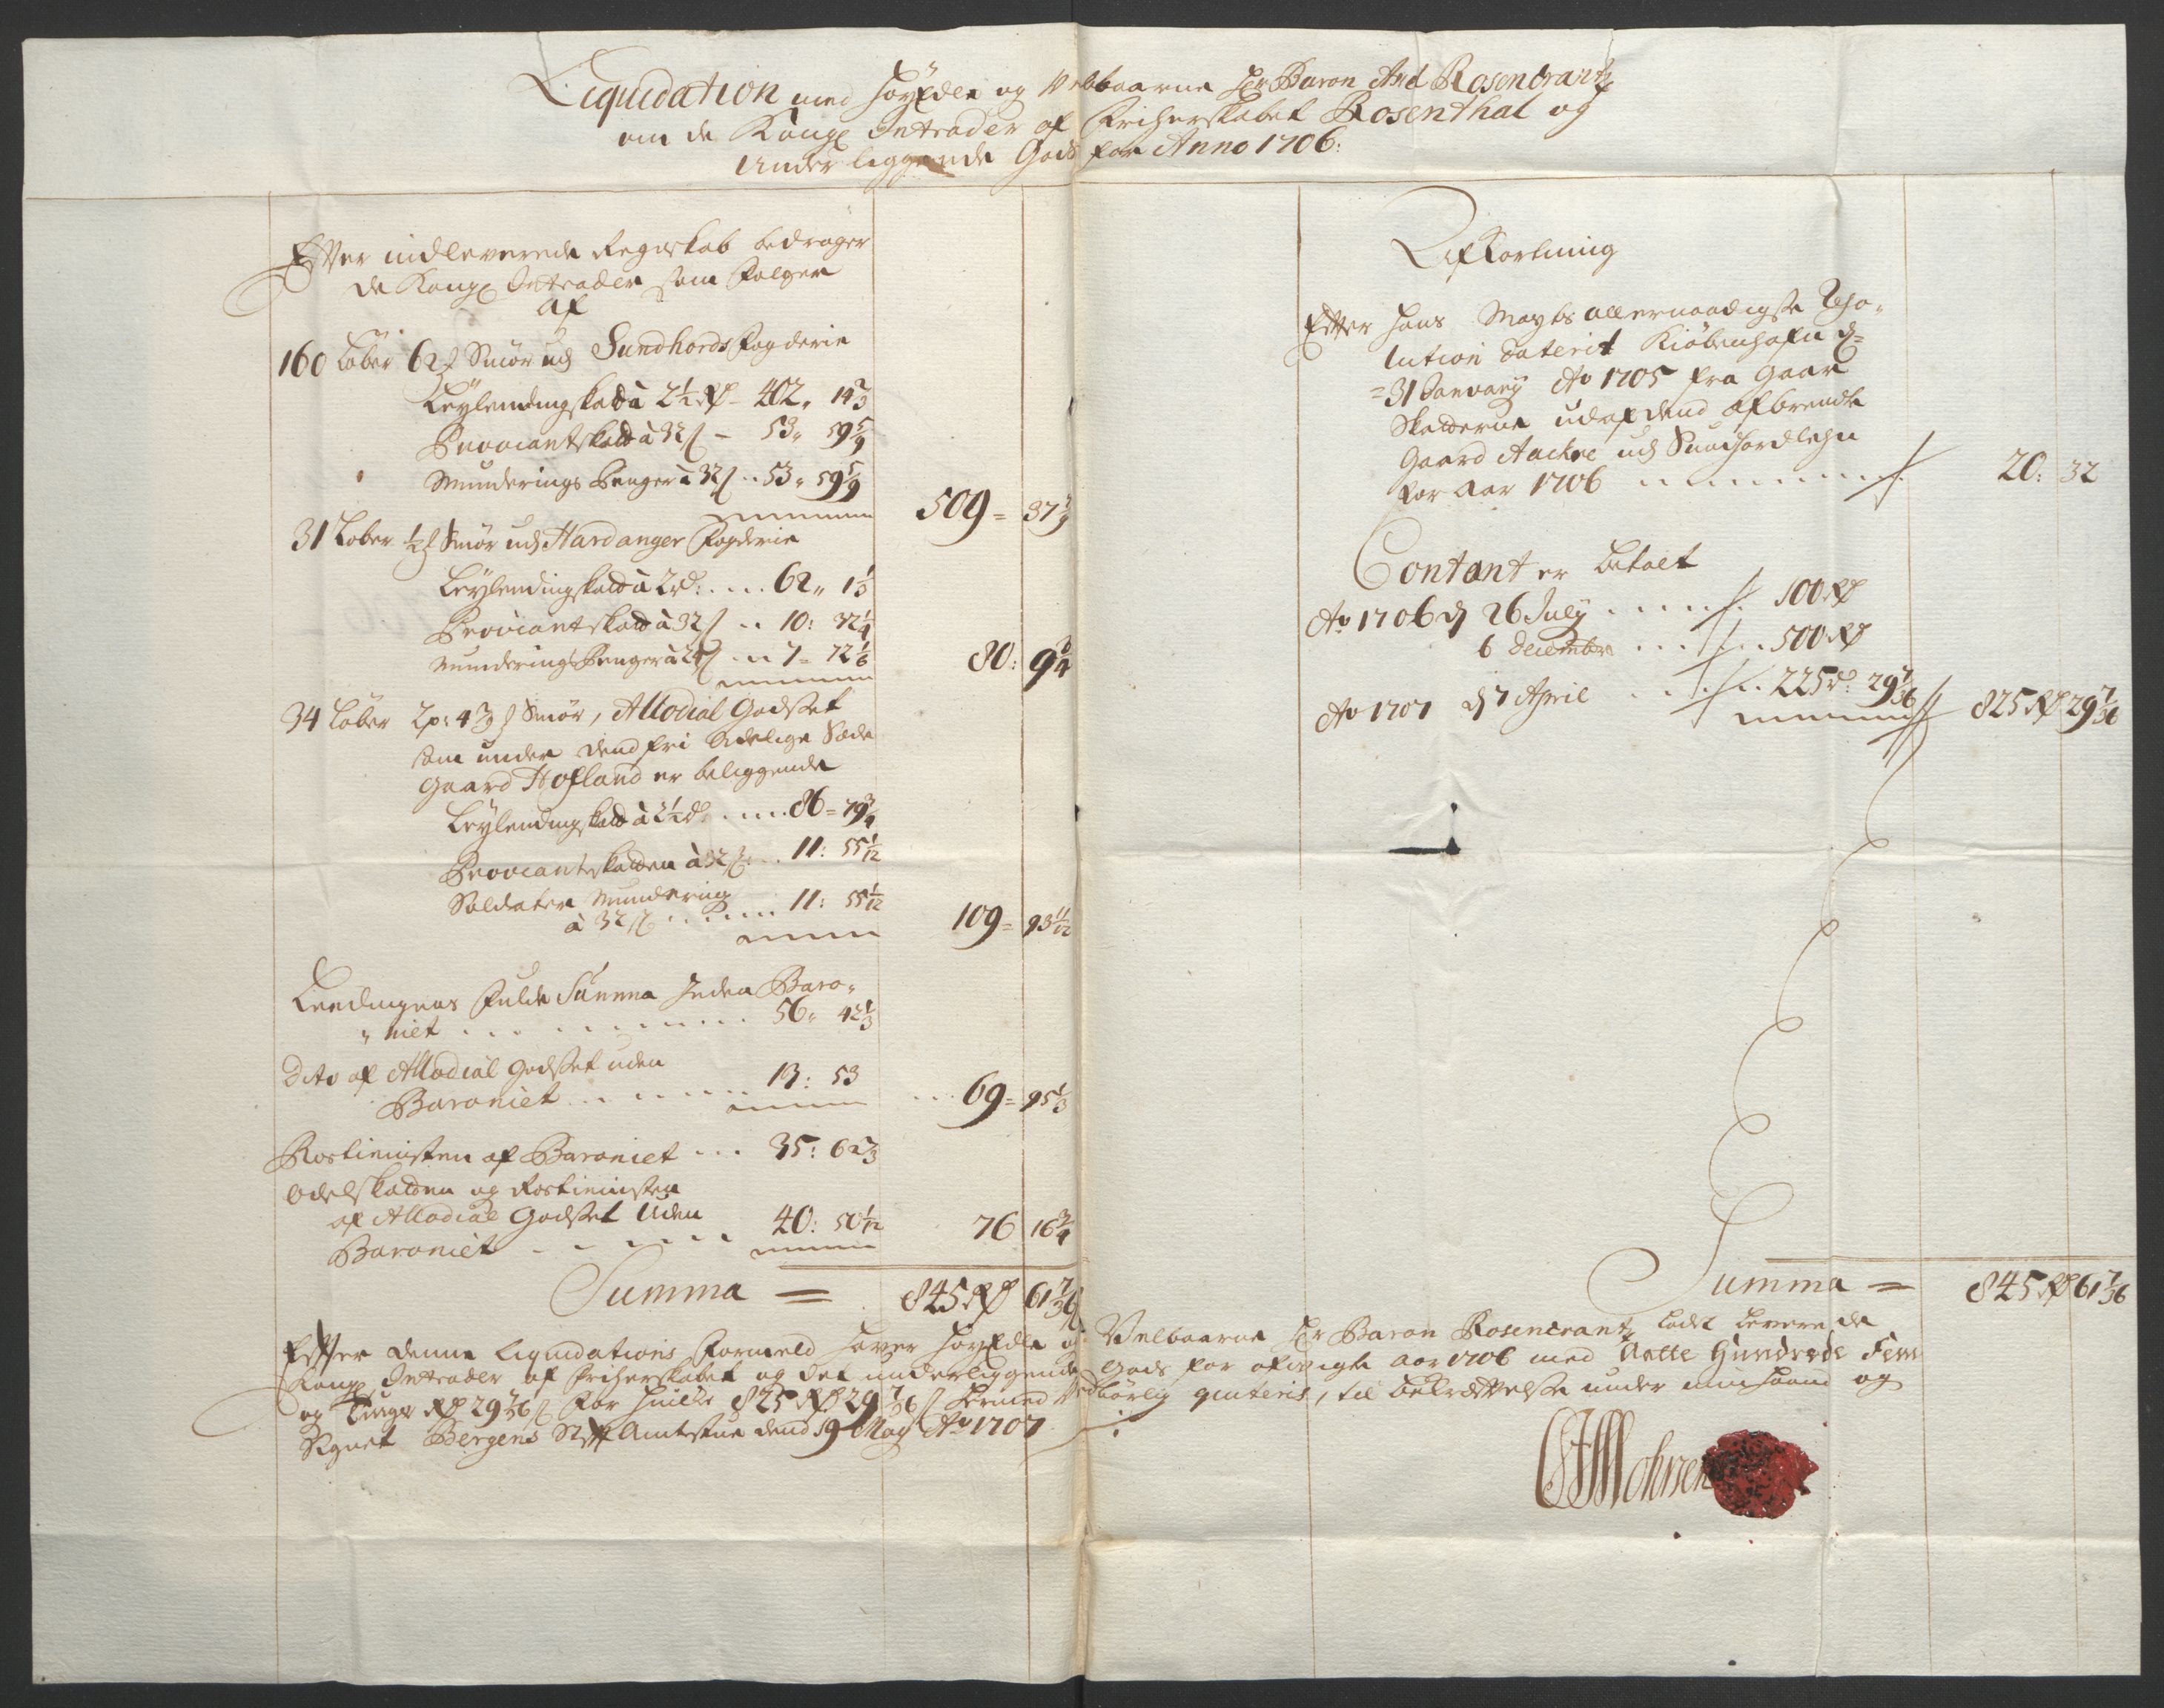 Liquidation med Høyædle og Velbaarne Hr Baron Axel Rosencrantz
om de Kongl Intrader af Friherskabet Rosenthal og
underliggende Gods for Anno 1706:
Efter indleverede Regnskab bedrager
de Kongl Intrader som følger
af
160 Løber 6 2/3 Smør udj Sundhords Fogderie
Leylendingskatt à 2 1/2 Rdr - 402 " 14 2/3
Proviantskatt à 32 s - 53 " 59 5/9
Munderings Penger à 32 s .. 53 " 59 5/9
509 = 37 7/9
31 Løber 1/2 Smør udj Hardanger Fogderie
Leylendingskatt à 2 rd: .... 62 " 1 1/3
Proviantskatt à 32 s .. 10: 32 1/4
Munderings Penger à 24 s ... 7 = 72 1/6
80: 9 3/4
34 Løber 2 p: 4 3/9 Smør, Allodial Godset
som under dend fri Adelige Sæde
Gaard Hofland er beliggende
Leylendingskatt à 2 1/2 d: ..... 86 = 79 3/4
Proviantskatten à 32 s: .. 11: 55 1/12
Soldater Mundering
à 32 s ....... 11: 55 1/12
109 = 93 11/12
Leedingens fulde Summa Inden Baro"
" niet ........... 56 " 42 1/3
Dito af Allodial Godset uden
Baroniet ........ 13: 53
... 69 = 95 1/3
Rostienisten af Baroniet ... 35: 62 2/3
Odelskatten og Rostienisten
af Allodial Godset Uden
Baroniet ...... 40: 50 1/12
76 16 3/4
Summa = 845 Rdr 61 7/36
Afkortning
Efter Hans Mayts allernaadigste Reso"
lution daterit Kiøbenhafn d=
=31 January Ao 1705 fra Gaar
Skatterne udaf dend afbrendte
Gaard Aackre udj Sundhordlehn
for Aar 1706 ........ 20: 32
Contant er betalt
Ao 1706 d 26 July ...... 100 Rdr
6 Decembr ...... 500 Rdr
Ao 1707 d 7 April ..... 225 d: 29 7/36
825 Rdr 29 7/36
Summa = 845 Rdr 61 7/36
Efter denne Liquidations Formeld haver Høyædle og Velbaarne Hr Baron Rosencrantz ladet levere de
Kongl Intrader af Friherskabet og det underliggende Gods for afvigte Aar 1706 med Aatte Hundrede Fem
og Tiuge Rdr 29 7/36 s for hvilke 825 Rdr 29 7/36 s hermed Vedbørlig qviteris, til bekræftelse under min haand og
Signet Bergens StiftAmtstue dend 19 May Ao 1707